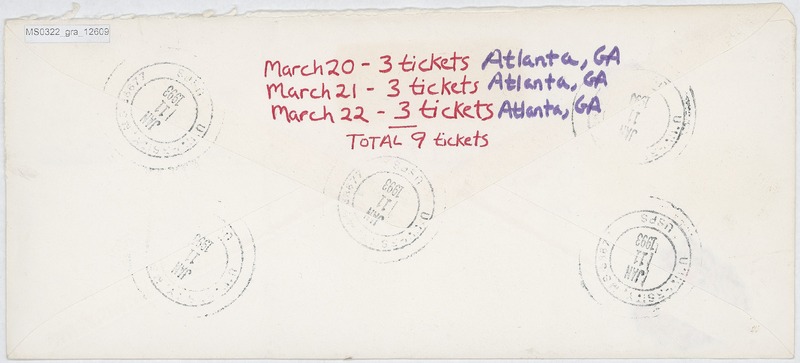 MS0322_gra_12609
March 20 - 3 tickets Atlanta, GA
March 21 - 3 tickets Atlanta, GA
March 22 - 3 tickets Atlanta, GA
TOTAL 9 tickets
USPS
1993
11
JAN
1993
11
JAN
USPS
1993
11
JAN
1993
11
JAN
USPS
1993
11
JAN